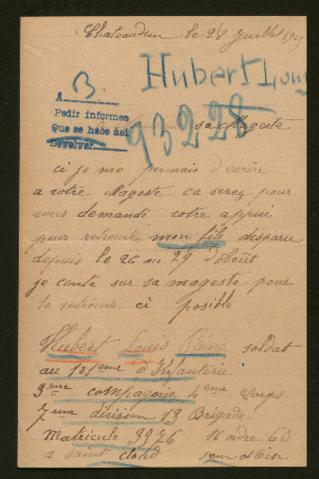 Chateaudun le 28 Juillet 191
Hubert Louis
A B.
Pedir informes
Que se hace así
Devolver
93228
sa Majeste
ci je me permais d'ecrire
a votre Mageste ca serez pour
vous demandé votre appui
pour retrouvé mon fils disparu
depuis le 26 au 29 d'Août
je conte sur sa mageste pour
le retrouvé ci posible
Hubert Louis soldat
au 101eme d'Infanterie
3eme compagnie 4eme Corps
7eme division 13 Brigade
Matricule 3976 n ordre 60
a saint cloud